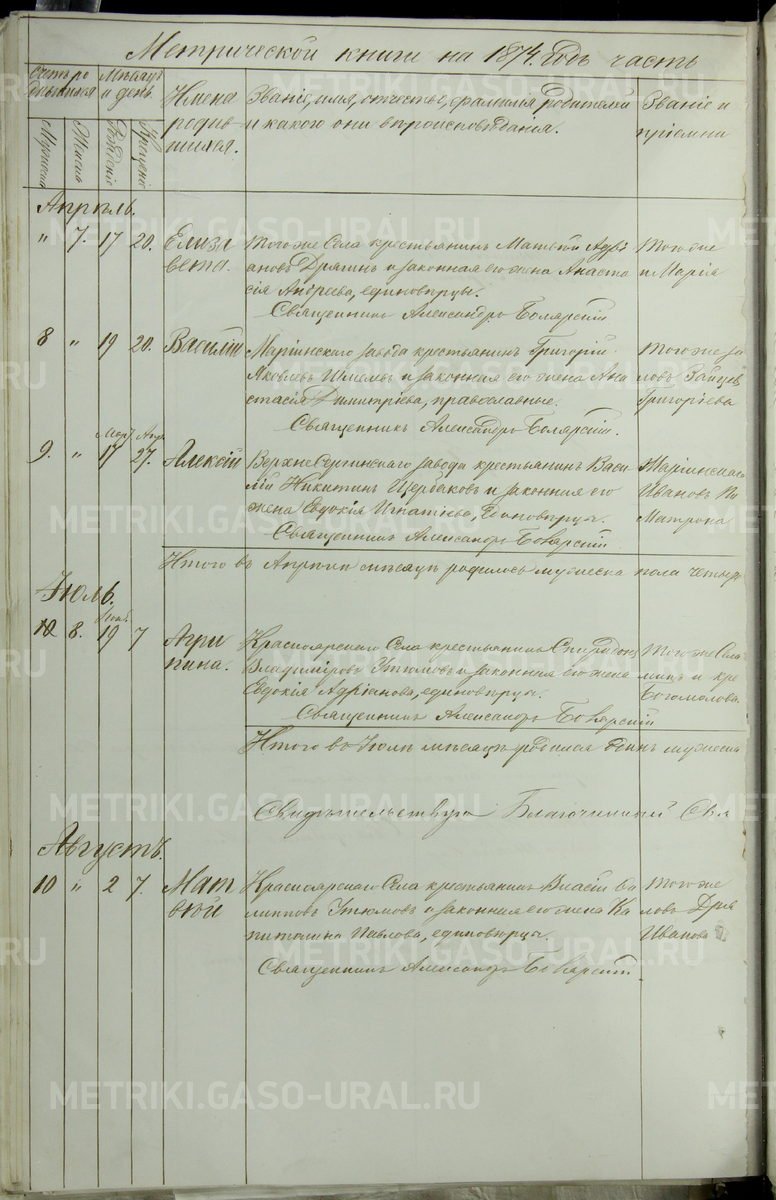 Метрической книги на 1874. годъ часть
Счетъ ро
дившихся
Мѣсяцъ
и день.
Имена
родив
шихся.
Званіе, имя, отчество, фамилія родителей
и какого они вѣроисповѣданія.
Званіе и
пріемни
Мужеска
Женска
Рожденіе
Крещеніе
Апрѣль.
" 7. 17 20. Елиза
вета.
Того же Села крестьянинъ Матвѣй Адрі
ановъ и законная его жена Анаста
сія Андреева, единовѣрцы.
Священникъ Александръ Боярскій
Того же
и Марія
8 " 19 20. Василій
Маріинскаго завода крестьянинъ Григорій
Яковлевъ и законная его жена Ана
стасія Димитріева, православные.
Священникъ Александръ Боярскій.
Того же за
Григорьева
Март Апр.
9. " 17 27. Алексій
Верхне Сергинскаго завода крестьянинъ Васи
лій Никитинъ Щербаковъ и законная его
жена Евдокія Игнатіева, Единовѣрцы.
Священникъ Александръ Боярскій
Маріинскаго
Ивановъ
Матрона
Итого въ Апрѣлѣ мѣсяцѣ родилось мужеска пола четыр
Іюль.
10 8. 19 7 Агри
пина.
Красноярскаго Села крестьянинъ Спиридонъ
Владиміровъ Утюмовъ и законная его жена
Евдокія Адріанова, единовѣрцы.
Священникъ Александръ Боярскій
Того же Села
и кре
Богомолова
Итого въ Іюлѣ мѣсяцѣ родился одинъ мужеска
Свидѣтельствую Благочинный Свя
Августъ.
10 " 2 7. Мат
вѣй
Красноярскаго Села крестьянинъ Власій Фи
липповъ Утюмовъ и законная его жена Ка
питолина Павлова, единовѣрцы.
Священникъ Александръ Боярскій
Того же
ловъ Дря
Иванова
METRIKI.GASO-URAL.RU